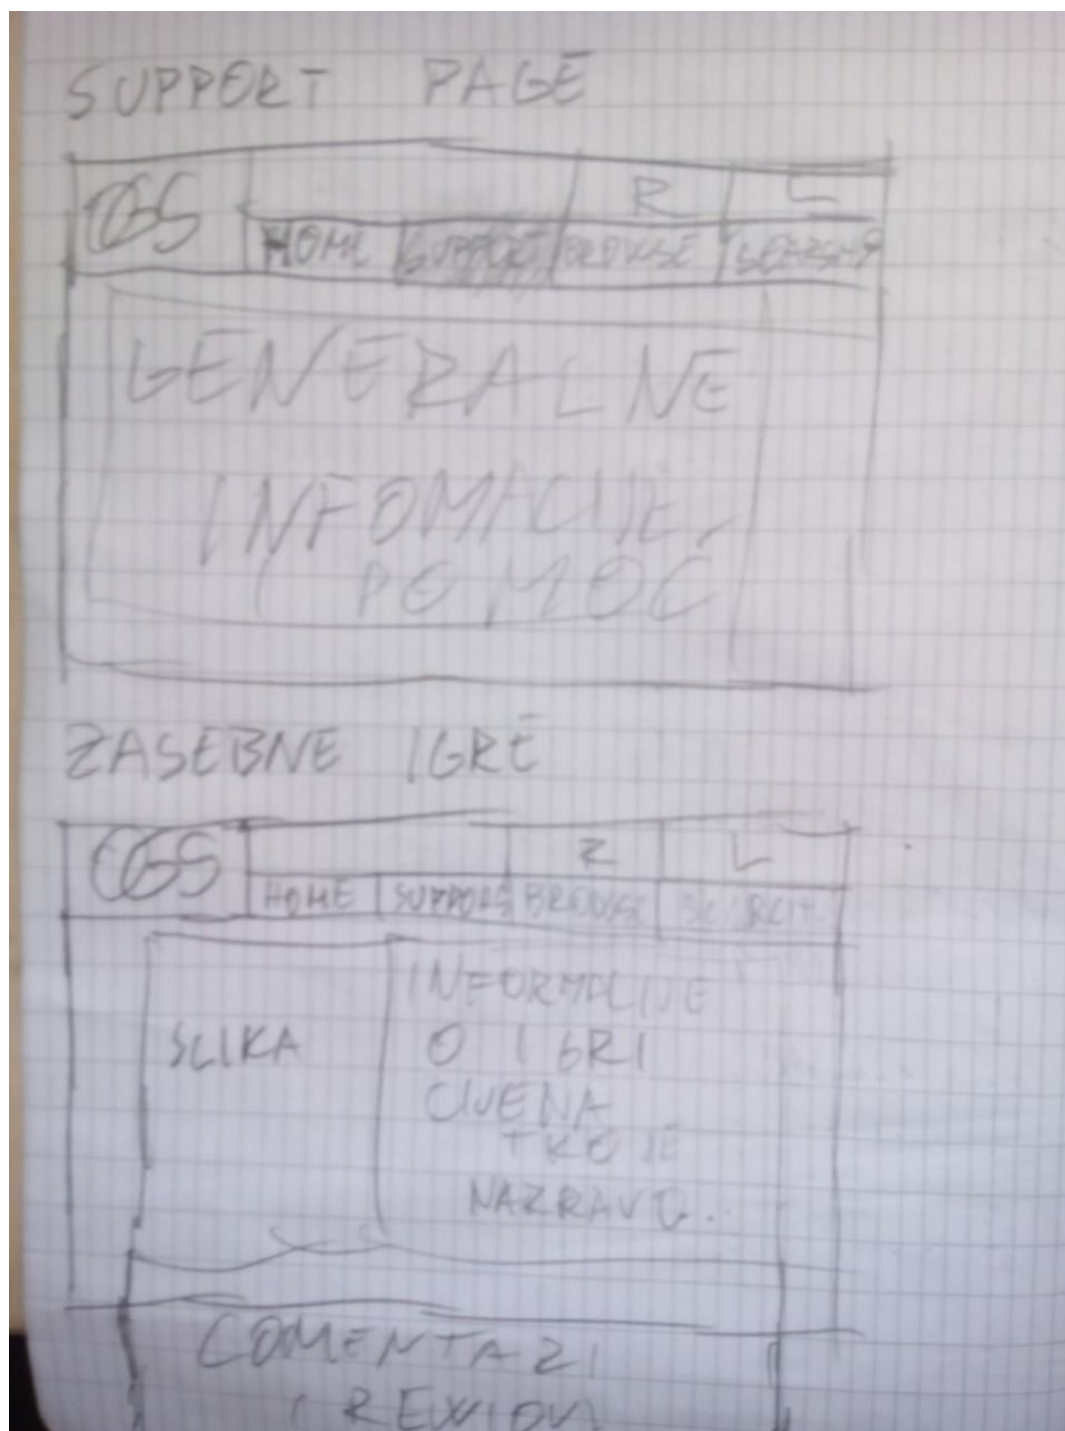 SUPPORT PAGE
OGS R L
HOME SUPPORT BROWSE SEARCH
GENERALNE
INFOMACIJE,
I POMOC
ZASEBNE IGRE
OGS R L
HOME SUPPORT BROWSE SEARCH
SLIKA
INFORMACIJE
O IGRI
CIJENA
TKO JE
NAPRAVO.
COMENTARI
I REWIOVI